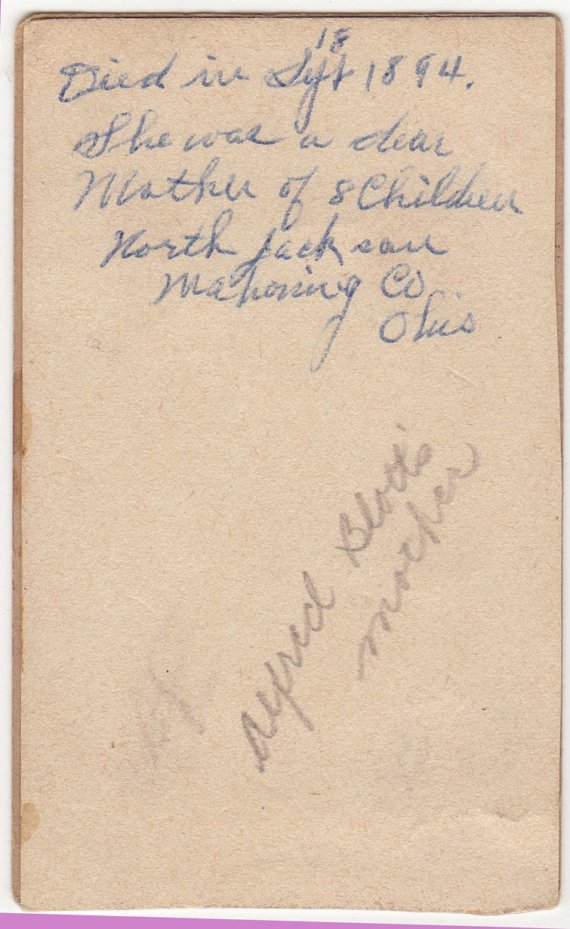 Died in Sept 18 1894.
She was a dear
Mother of 8 Children
North Jackson
Mahoning Co.
Ohio
Alfred
Mother